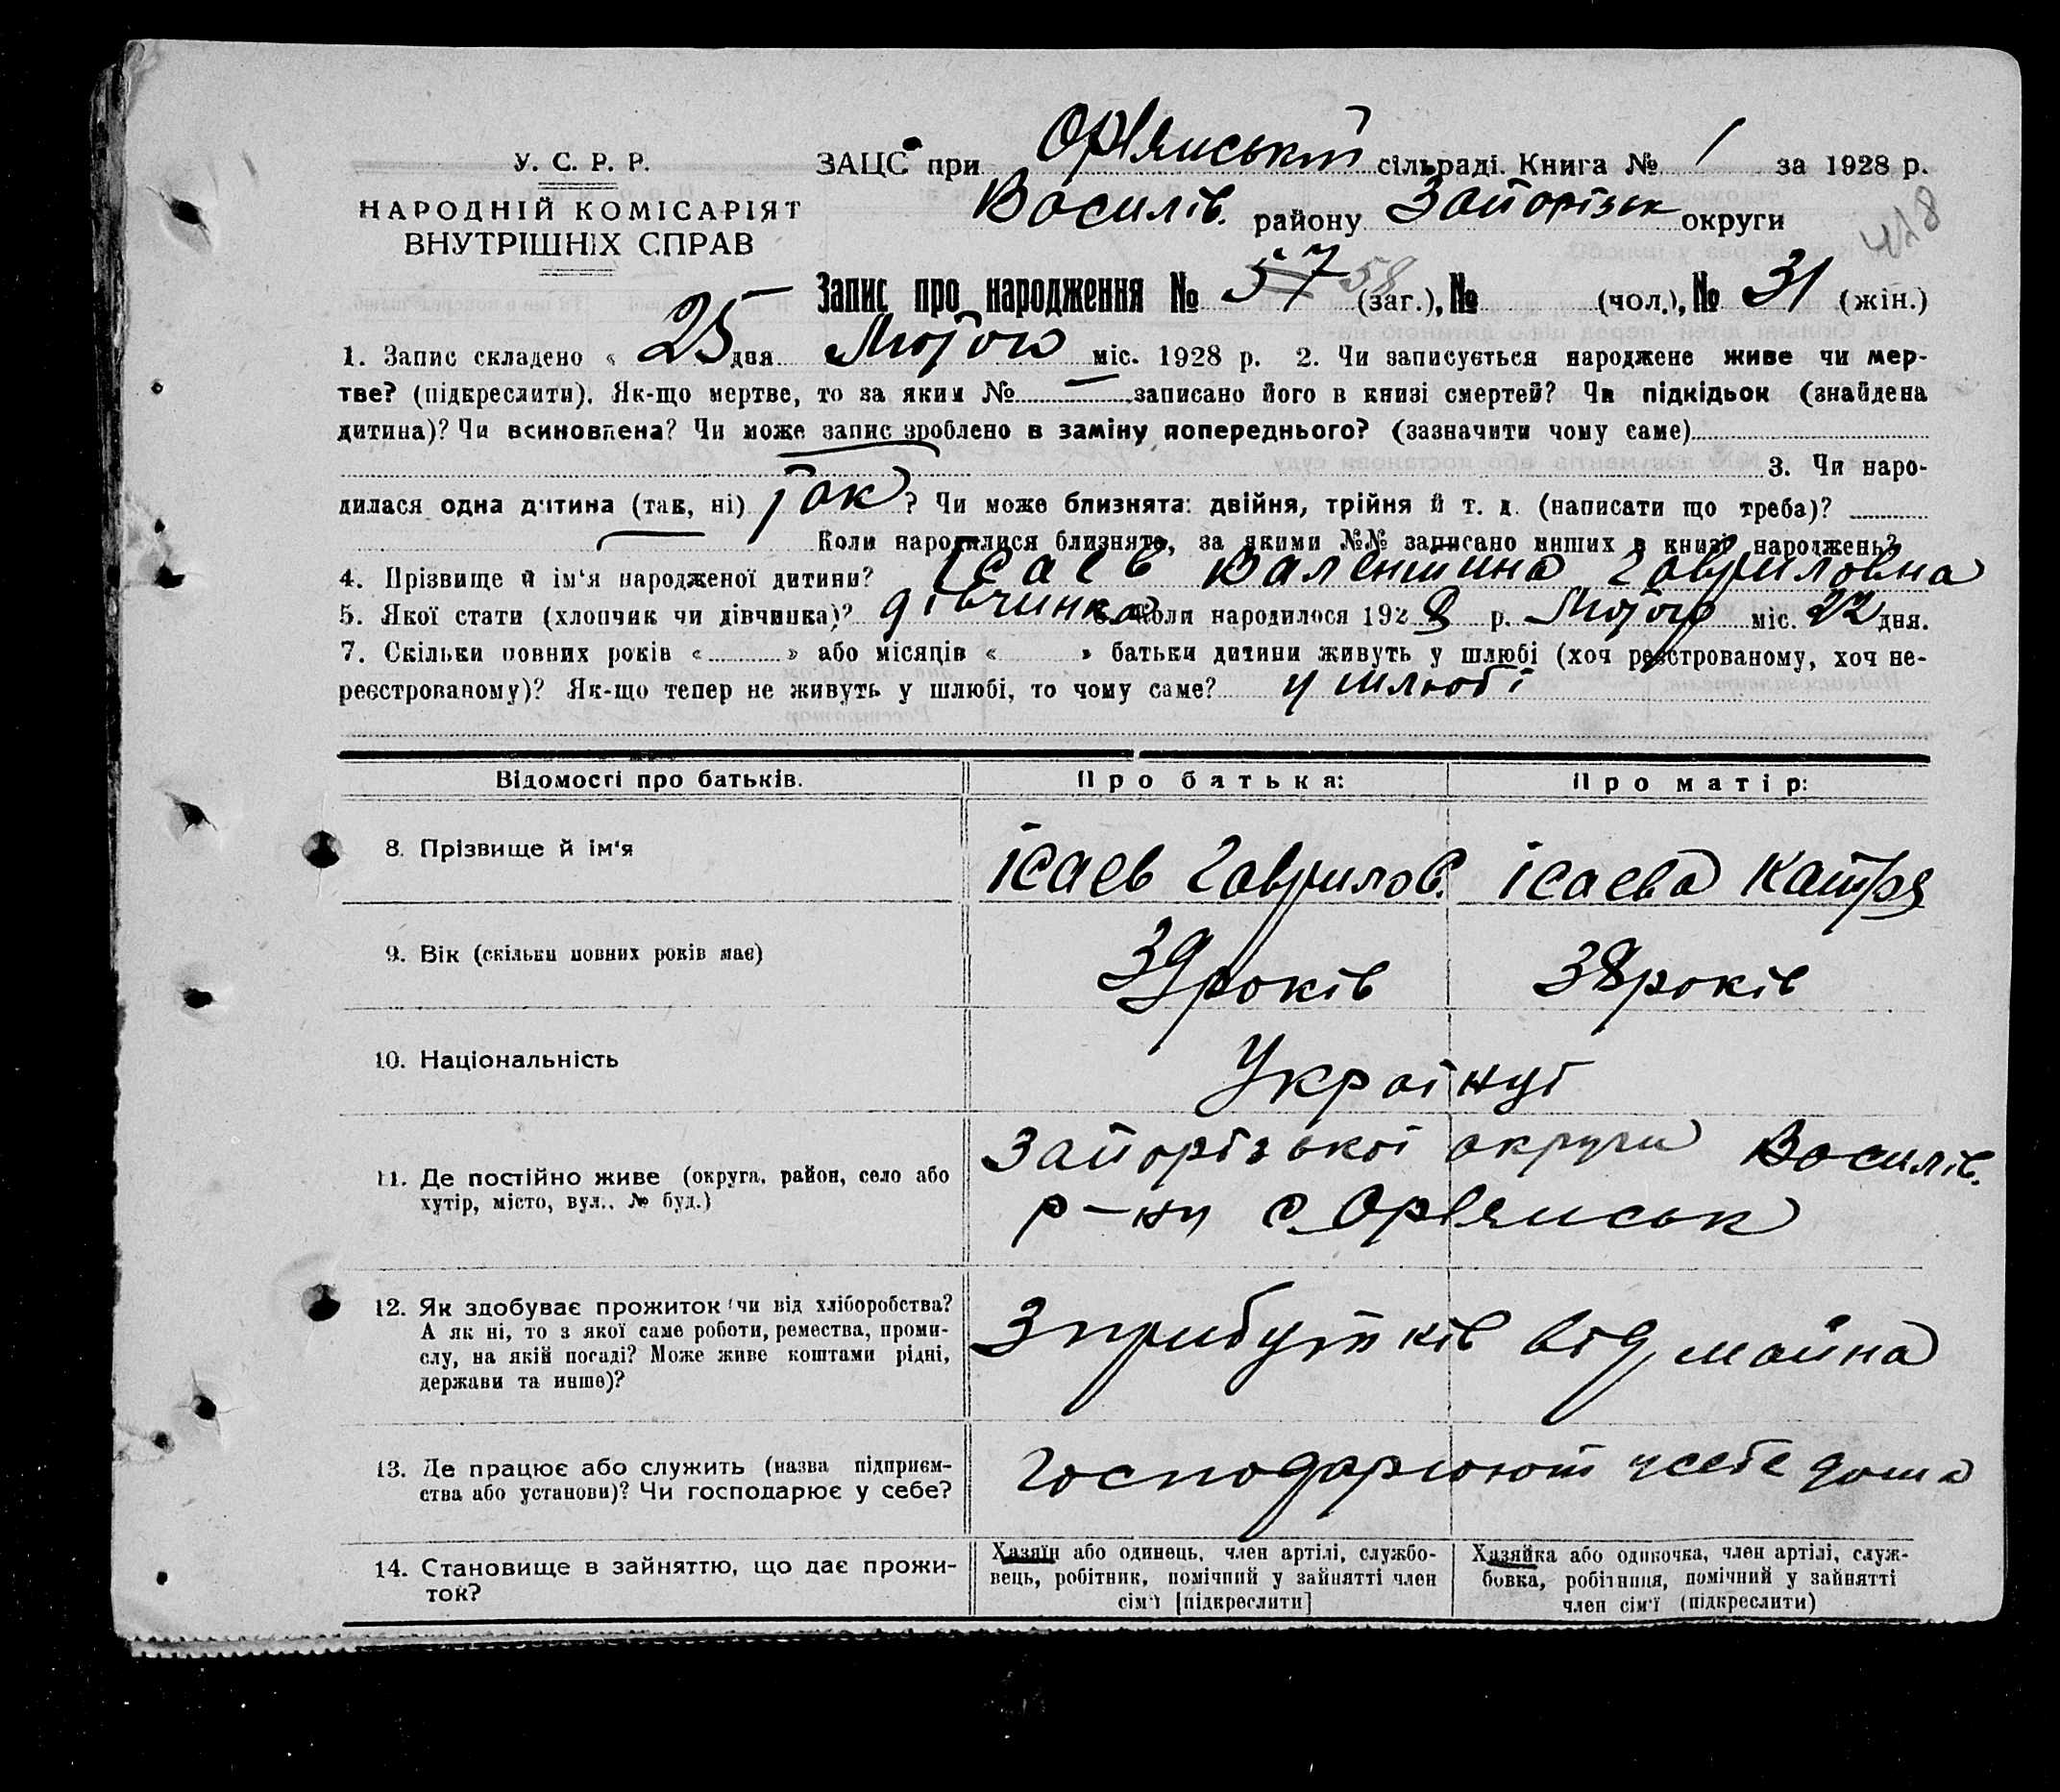 У. С. Р. Р.
НАРОДНІЙ КОМІСАРІЯТ
ВНУТРІШНІХ СПРАВ
ЗАЦС при Орлянській сільраді. Книга № 1 за 1928 р.
Василів. району Запорізьк округи
418
Запис про народження № 57 58 (заг.), № (чол.), № 31 (жін.)
1. Запис складено « 25 дня Лютого міс. 1928 р. 2. Чи записується народжене живе чи мер-
тве? (підкреслити). Як-що мертве, то за яким № — записано його в книзі смертей? Чи підкідьок (знайдена
дитина)? Чи всиновлена? Чи може запис зроблено в заміну попереднього? (зазначити чому саме)
3. Чи наро-
дилася одна дитина (так, ні) так? Чи може близнята: двійня, трійня й т. д. (написати що треба)?
Коли народилися близнята, за якими №№ записано инших в книзі народжень?
4. Прізвище й ім'я народженої дитини? Ісаєв Валентина Гавриловна
5. Якої стати (хлопчик чи дівчинка)? дівчинка Коли народилося 1928 р. Лютого міс. 22 дня.
7. Скільки повних років « » або місяців « » батьки дитини живуть у шлюбі (хоч реєстрованому, хоч не-
реєстрованому)? Як-що тепер не живуть у шлюбі, то чому саме? у шлюбі
Відомості про батьків. Про батька: Про матір:
8. Прізвище й ім'я Ісаєв Гаврилов. Ісаєва Катря
9. Вік (скільки повних років має) 39 років 38 років
10. Національність Українці
11. Де постійно живе (округа, район, село або
хутір, місто, вул., № буд.)
Запорізької округи Василів.
р-ну с. Орлянськ
12. Як здобуває прожиток (чи від хліборобства?
А як ні, то з якої саме роботи, ремества, проми-
слу, на якій посаді? Може живе коштами рідні,
держави та инше)?
З прибутків від майна
13. Де працює або служить (назва підприєм-
ства або установи)? Чи господарює у себе?
Господарюют у себе дома
14. Становище в зайняттю, що дає прожи-
ток?
Хазяїн або одинець, член артілі, службо-
вець, робітник, помічний у зайнятті член
сім'ї [підкреслити]
Хазяйка або одиночка, член артілі, служ-
бовка, робітниця, помічний у зайнятті
член сім'ї (підкреслити)